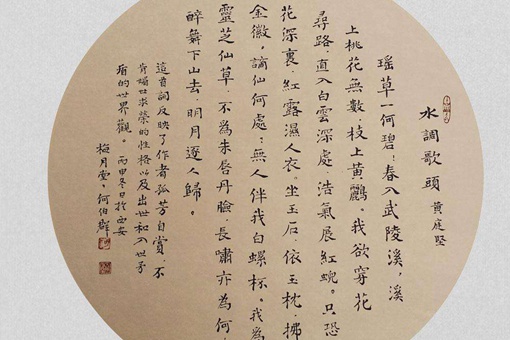 水調歌頭 黃庭堅
瑶草一何碧!春入武陵溪,溪
上桃花無數,枝上黃鸝。我欲穿花
尋路,直入白雲深處,浩氣展紅蜺。只恐
花深裏,紅露濕人衣。坐玉石,依玉枕,拂
金徽,謫仙何處?無人伴我白螺杯。我為
靈芝仙草,不為朱唇丹臉,長嘯亦為何
醉舞下山去,明月逐人歸。
這首詞反映了作者孤芳自賞,不
肯媚世求榮的性格以及出世和入世矛
盾的世界觀。丙申冬日於西安
梅月堂,何伯群